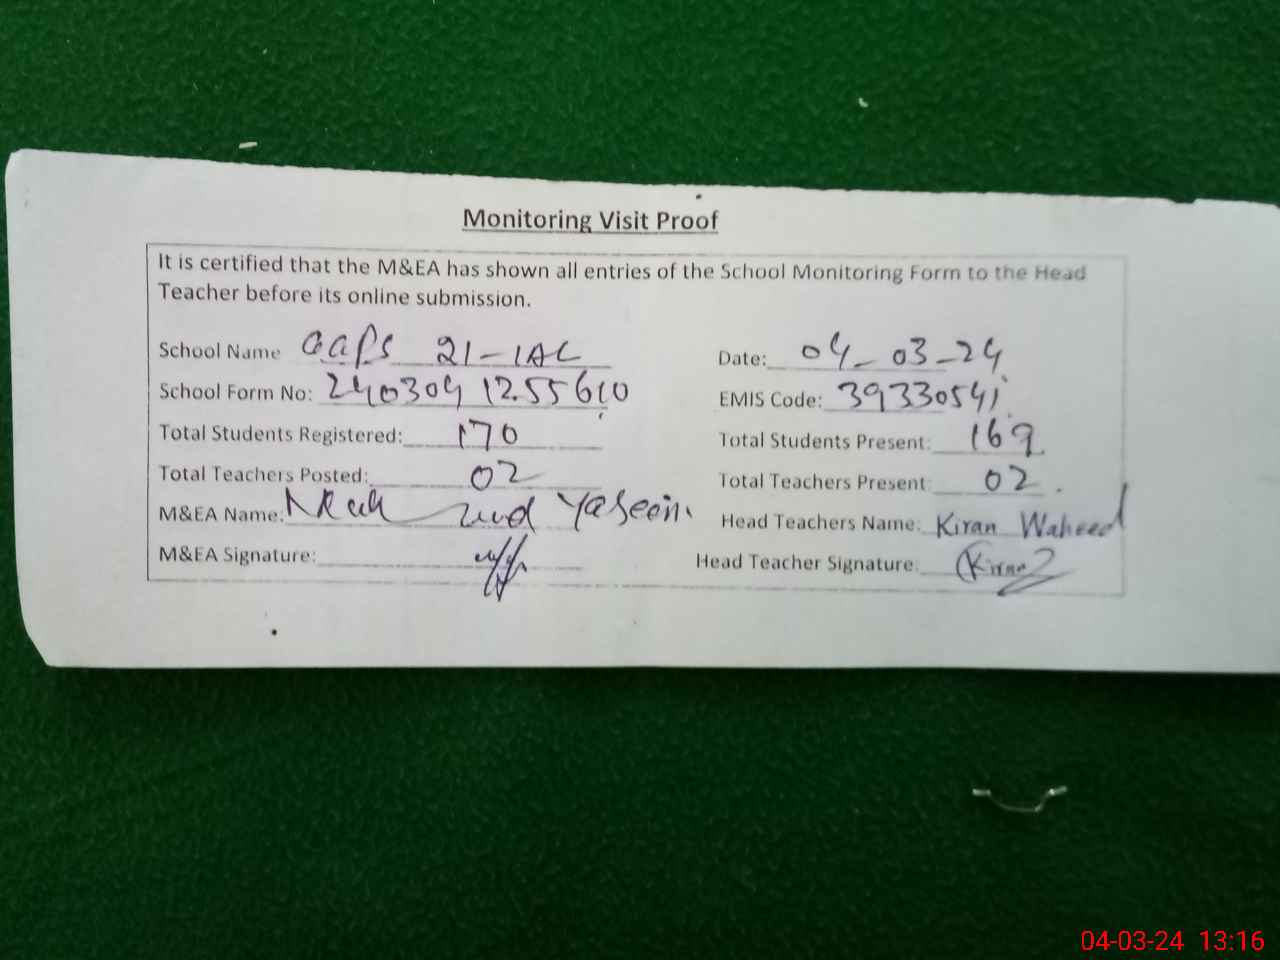 Monitoring Visit Proof
It is certified that the M&EA has shown all entries of the School Monitoring Form to the Head
Teacher before its online submission.
School Name GGPS 21-1AL Date: 04-03-24
School Form No: 240304 1255610 EMIS Code: 39330541
Total Students Registered: 170 Total Students Present: 169
Total Teachers Posted: 02 Total Teachers Present: 02
M&EA Name: Yaseen Head Teachers Name: Kiran Waheed
M&EA Signature: Head Teacher Signature: Kiran
04-03-24 13:16